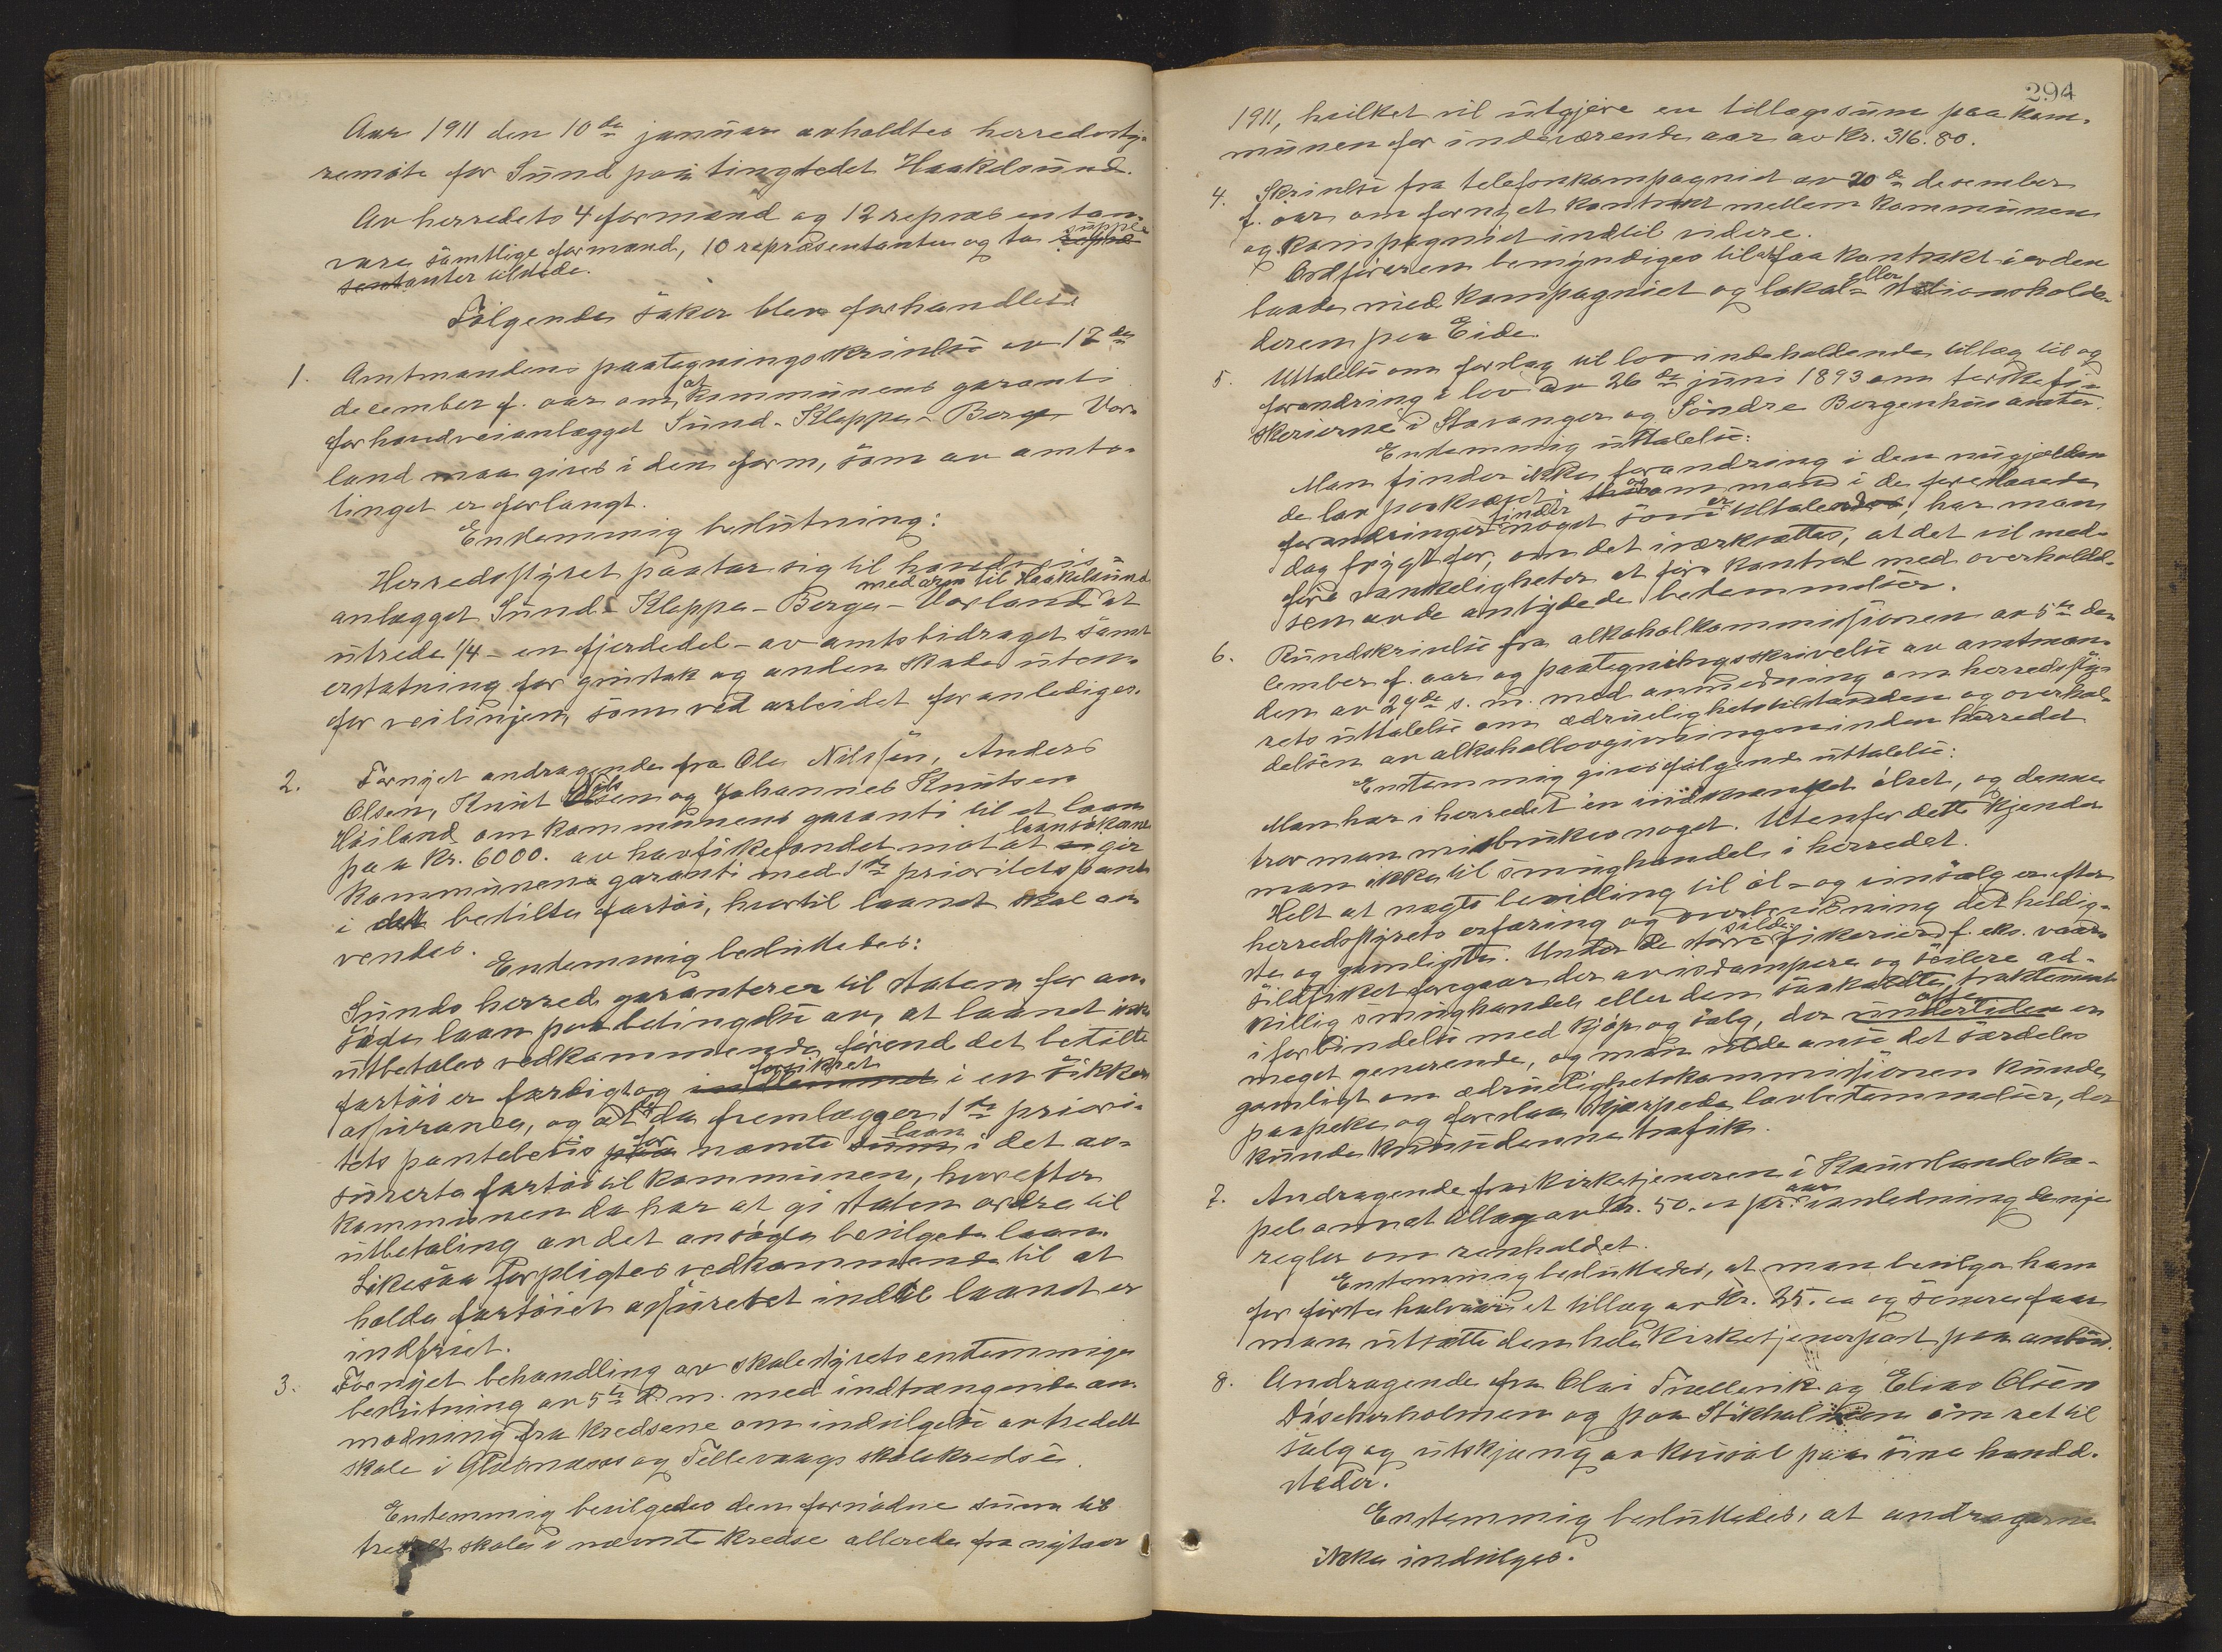 Aar 1911 den 10de januar avholdtes herredssty-
remöte for Sund paa tingstedet Haakelsund.
Av herredets 4 formænd og 12 repræsentan-
vare samtlige formænd, 10 repræsentanter og to supple
sentanter tilstede.
Fölgende saker blev forhandlet:
1. Amtmandens paategningsskrivelse av 17de
december f. aar om at kommunens garanti
for hovedveianlægget Sund - Kleppe - Berge - Vor-
land maa gives i den form, som av amts-
tinget er forlangt.
Enstemmig beslutning:
Herredsstyret paatar sig til
anlægget Sund - Kleppe - Berge - Vorland med arm til Haakelsund at
utrede 1/4 - en fjerdedel - av amtsbidraget samt
erstatning for grustak og anden skade uten-
for veilinjen, som ved arbeidet foranlediges.
2. Fornyet andragende fra Ole Nilssen, Anders
Olsen, Knut Nils Olsen og Johannes Knutsen
Höiland om kommunens garanti til et laan
paa Kr. 6000. av havfiskefondet mot at laansökerne gir
kommunens garanti med 1ste prioritets pant
i det bestilte fartöi, hvortil laanet skal an-
vendes.
Enstemmig besluttedes:
Sunds herred garanterer til staten for an-
södte laan paa betingelse av, at laanet ikke
utbetales vedkommende förend det bestilte
fartöi er færdigt og forsikret i en sikker
assurance, og at de da fremlægger 1ste priori-
tets pantebevis for nævnte laan i det as-
surerte fartöi til kommunen, hvorefter
kommunen da har at gi staten ordre til
utbetaling av det ansögte bevilgede laan.
Likesaa forpligtes vedkommende til at
holde fartöiet assureret indtil laanet er
indfriet.
3. Fornyet behandling av skolestyrets enstemmige
beslutning av 5te d. m. med indtrængende an-
modning fra kredsene om indvilgelse av tredelt
skole i Glesnæs og Tellevaags skolekredse.
Enstemmig bevilgedes den fornödne sum til
tredelt skole i nævnte kredse allerede fra nytaar
294
1911, hvilket vil utgjöre en tillægssum paa kom-
munen for indeværende aar av Kr. 316.80.
4. Skrivelse fra telefonkompagniet av 20de desember
f. aar om fornyet kontrakt mellem kommunen
og kompagniet indtil videre.
Ordföreren bemyndiges til at faa kontrakt i orden
baade med kompagniet og lokal- eller stationsholde-
deren paa Eide.
5. Uttalelse om forslag til lov indeholdende tillæg til og
forandring i lov av 26de juni 1893 om torskefi-
skerierne i Stavanger og Söndre Bergenhus amter.
Enstemmig uttalelse:
Man finder ikke forandring i den nugjælden-
de lov paakrævet; og om man i de foreslaaede
forandringer finder noget som er tiltalende, har man
dog frygt for, om det iværksættes, at det vil med-
före vanskeligheter at före kontrol med overholdel-
sen av de antydede bestemmelser.
6. Rundskrivelse fra alkoholkommissionen av 5te de-
cember f. aar og paategningsskrivelse av amtman-
den av 29de s. m. med anmodning om herredssty-
rets uttalelse om ædruelighetstilstanden og overhol-
delsen av alkohollovgivningen inden herredet
Enstemmig gives fölgende uttalelse:
Man har i herredet en indskrænket ölret, og denne
tror man misbrukes noget. Utenfor dette kjender
man ikke til smughandel i herredet.
Helt at nægte bevilling til öl- og vinsalg er efter
herredsstyrets erfaring og overbevisning det heldig-
ste og gavnligste. Under de större sildefiskerier f. eks. vaar-
sildfisket foregaar der av isdampere og seilere ad-
skillig smughandel eller den saakaldte traktement
i forbindelse med kjöp og salg, der ofte er
meget generende, og man vilde anse det særdeles
gavnligt om ædruelighetskommissionen kunde
paapeke og foreslaa skjærpede lovbestemmelser, der
kunde knuse denne trafik.
7. Andragende fra kirketjeneren i Kausland ska-
pel om et tillæg av Kr. 50.00 pr. aar i anledning de nye
regler om renholdet.
Enstemmig besluttedes, at man bevilger ham
for förste halvaar et tillæg av Kr. 25.00 og senere faar
man utsætte den hele kirketjenerpost paa anbud.
8. Andragende fra Olai Trellevik og Elias Olsen
og paa om ret til
salg og utskjænkning av paa sine handel-
steder.
Enstemmig besluttedes, at andragerne
ikke indvilges.